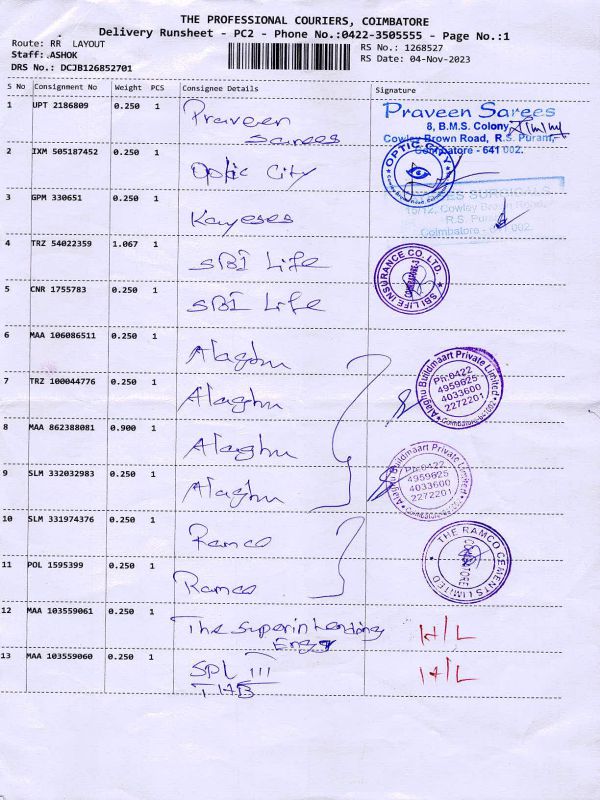 THE PROFESSIONAL COURIERS, COIMBATORE
Delivery Runsheet - PC2 - Phone No.:0422-3505555 - Page No.:1
Route: RR LAYOUT
RS No.: 1268527
Staff: ASHOK
RS Date: 04-Nov-2023
DRS No.: DCJB126852701
S No Consignment No Weight PCS Consignee Details Signature
1 UPT 2186809 0.250 1 Praveen Sarees
Praveen Sarees
8, B.M.S. Colony
Cowley Brown Road, R.S. Puram,
Coimbatore - 641 002.
2 IXM 505187452 0.250 1 Optic City
OPTIC CITY
3 GPM 330651 0.250 1 Kayeses
10/12, Cowley Brown Road
R.S. Puram
Coimbatore - 641 002.
4 TRZ 54022359 1.067 1 SBI Life
SBI LIFE INSURANCE CO. LTD.
5 CNR 1755783 0.250 1 SBI Life
6 MAA 106086511 0.250 1 Alaghu
Alaghu Buildmaart Private Limited
Ph:0422
4959625
4033600
2272201
Coimbatore-002
7 TRZ 100044776 0.250 1 Alaghu
8 MAA 862388081 0.900 1 Alaghu
Alaghu Buildmaart Private Limited
Ph:0422
4959625
4033600
2272201
Coimbatore-002
9 SLM 332032983 0.250 1 Alaghu
10 SLM 331974376 0.250 1 Ramco
THE RAMCO CEMENTS LIMITED
COIMBATORE
11 POL 1595399 0.250 1 Ramco
12 MAA 103559061 0.250 1 The Superintending Engr
H/L
13 MAA 103559060 0.250 1 SPL III
H/L